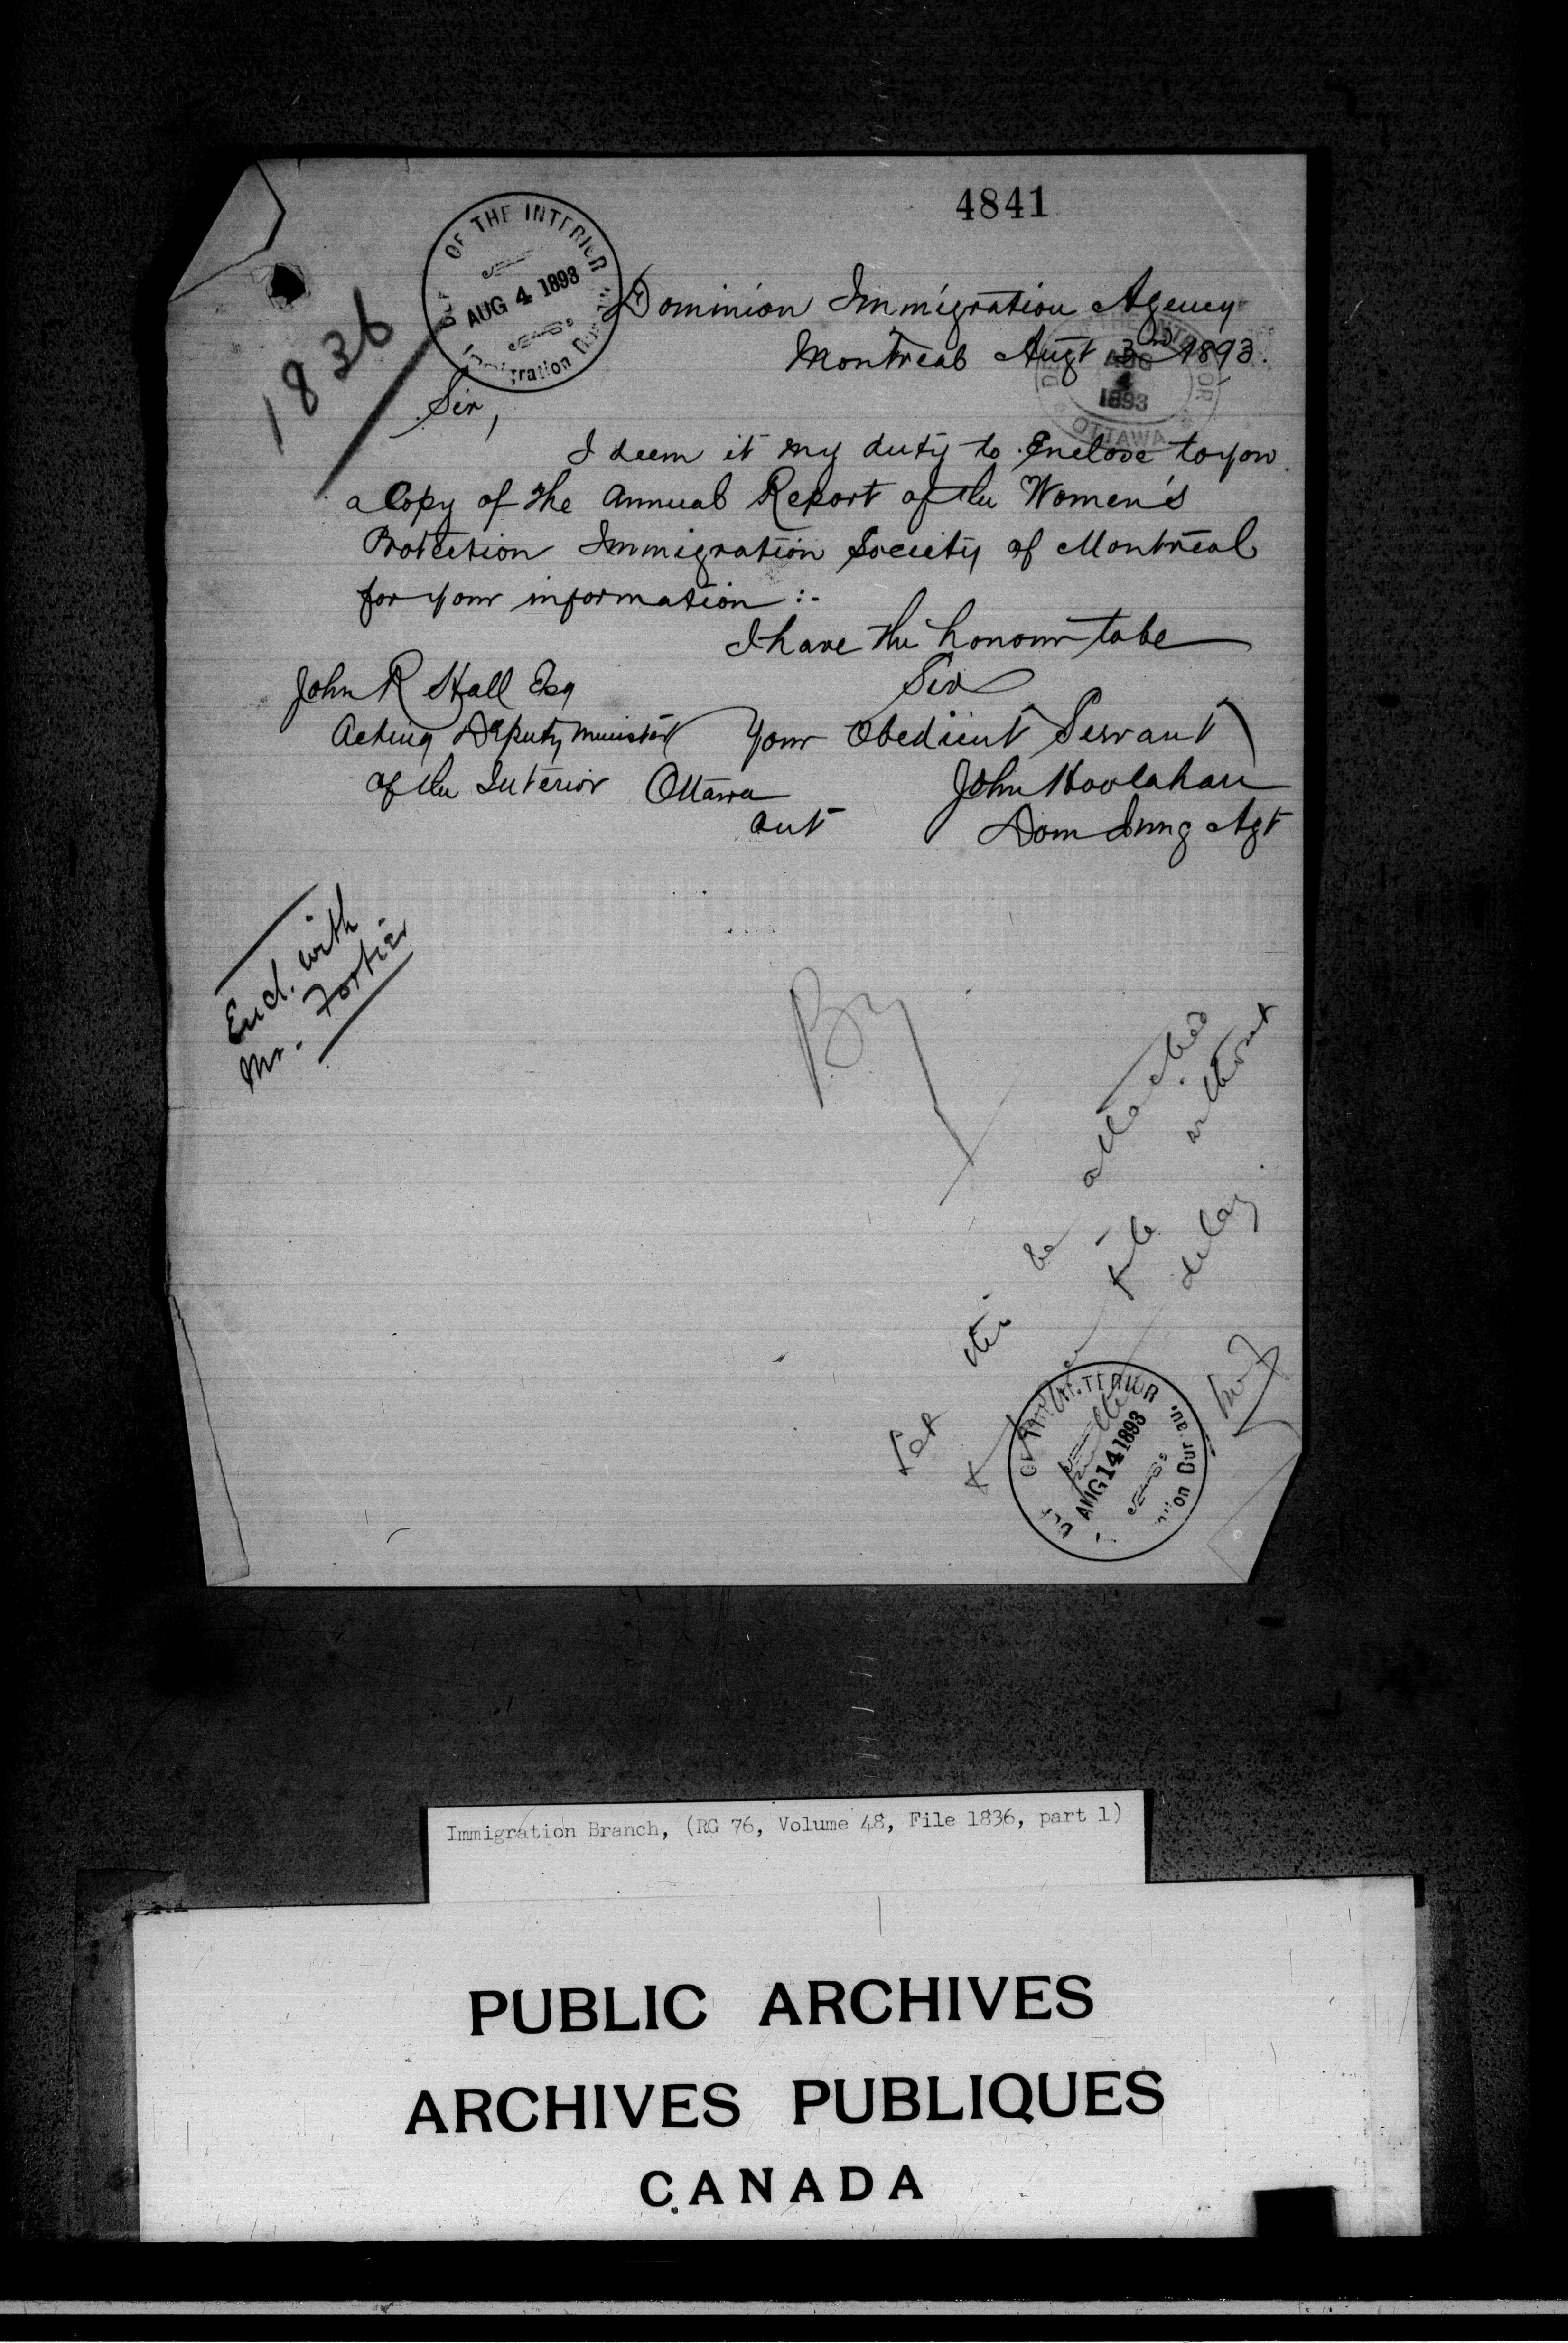 4841
1836
OF THE INTERIOR
AUG 4 1893
Dominion Immigration Agency
Montreal Augt 3rd 1893.
AUG
4
1893
OTTAWA
Sir,
I deem it my duty to Enclose to you
a Copy of the Annual Report of the Women's
Protection Immigration Society of Montreal
for your information :-
I have the honour to be
Sir
John R Hall Esq
Acting Deputy Minister
Your Obedient Servant
of the Interior Ottawa
Ont
John Hoolahan
Dom Immg Agt
Encl. with
Mr. Fortier
By
Let this be attached
to file without
delay.
INTERIOR
AUG 14 1893
Immigration Branch, (RG 76, Volume 48, File 1836, part 1)
PUBLIC ARCHIVES
ARCHIVES PUBLIQUES
CANADA